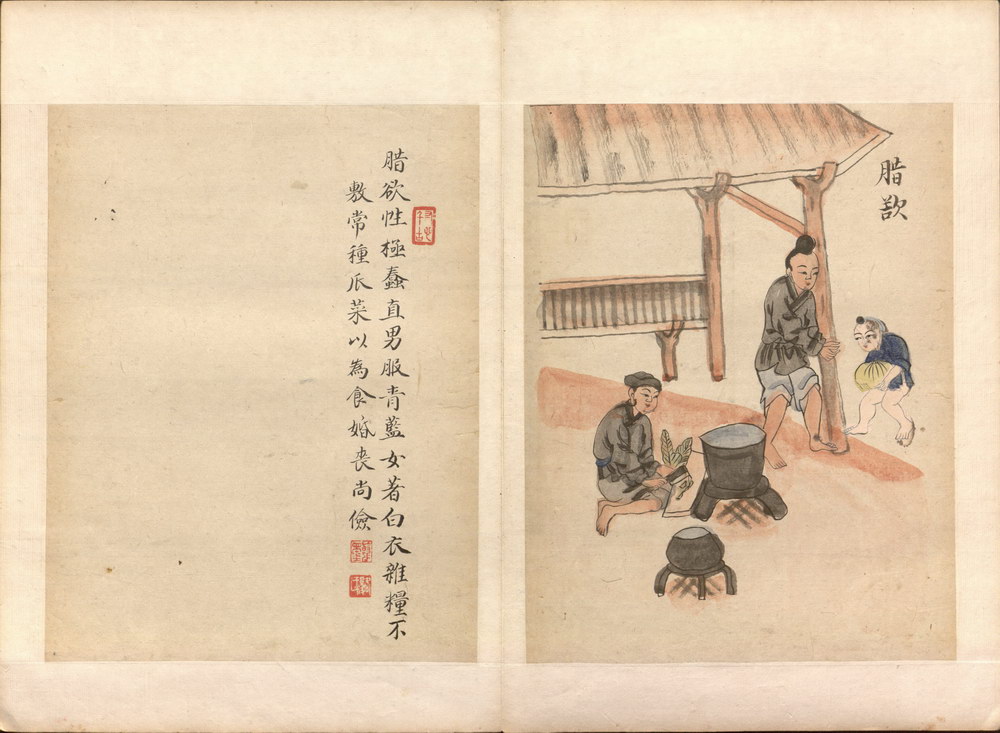 腊欲
腊欲性極蠢直男服青藍女著白衣雜糧不
敷常種瓜菜以為食婚喪尚儉